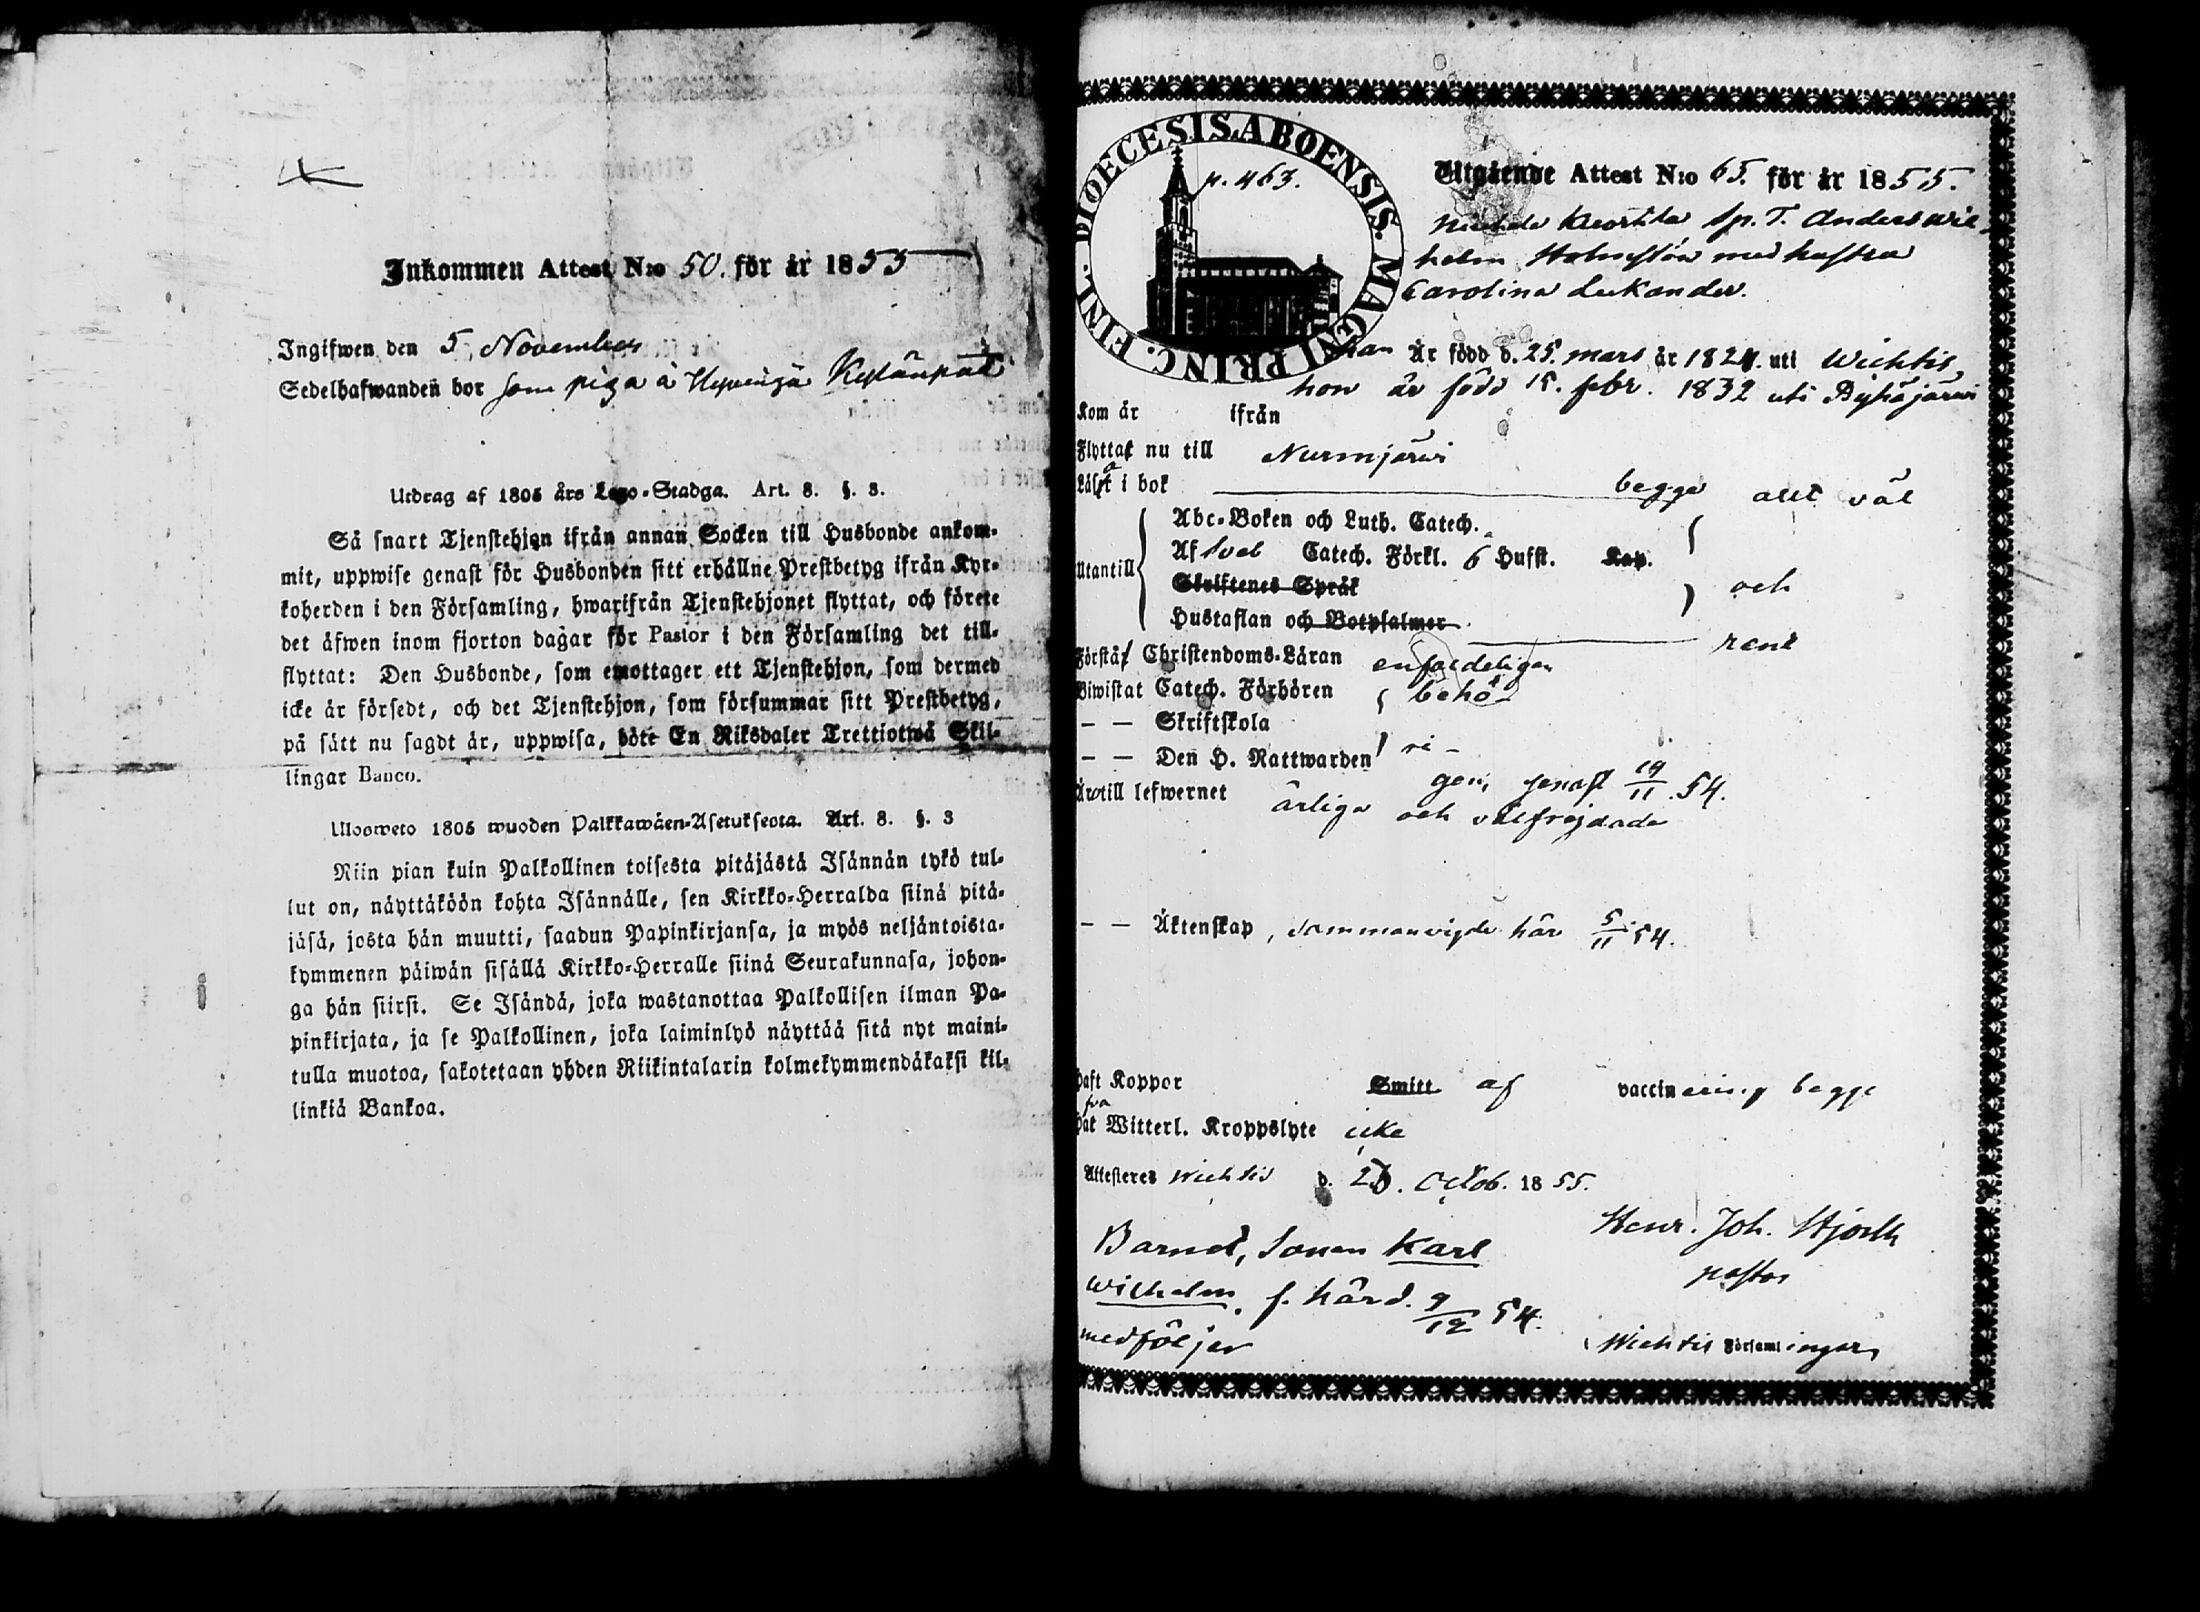 Inkommen Attest N:o 50. för år 1855
Ingifwen den 5 November
Sedelhafwanden bor som piga å Hyvingä Kylänpää
Utdrag af 1805 års Lego-Stadga. Art. 8. §. 3.
Så snart Tjenstehjon ifrån annan Socken till Husbonde ankom-
mit, uppwise genast för Husbonden sitt erhållne Prestbetyg ifrån Kyr-
koherden i den Församling, hwarifrån Tjenstehjonet flyttat, och förete
det äfwen inom fjorton dagar för Pastor i den Församling det till-
flyttat: Den Husbonde, som emottager ett Tjenstehjon, som dermed
icke är försedt, och det Tjenstehjon, som försummar sitt Prestbetyg,
på sätt nu sagdt är, uppwisa, böte En Riksdaler Trettiotwå Skil-
lingar Banco.
Ulosweto 1805 wuoden Palkkawäen-Asetuksesta. Art. 8. §. 3
Niin pian kuin Palkollinen toisesta pitäjästä Isännän tykö tul-
lut on, näyttäköön kohta Isännälle, sen Kirkko-Herralda siinä pitä-
jäsä, josta hän muutti, saadun Papinkirjansa, ja myös neljäntoista-
kymmenen päiwän sisällä Kirkko-Herralle siinä Seurakunnasa, johon-
ga hän siirsi. Se Isändä, joka wastanottaa Palkollisen ilman Pa-
pinkirjata, ja se Palkollinen, joka laiminlyö näyttää sitä nyt maini-
tulla muotoa, sakotetaan yhden Riikintalarin kolmekymmendäkaksi kil-
linkiä Bankoa.
DIOECESIS ABOENSIS. MAGNI PRINC. FINL.
p. 463.
Utgående Attest N:o 65. för år 1855.
sp. T. Anders Wil-
helm Holmstén med hustru
Carolina Lukander.
han Är född d. 25. mars år 1824. uti Wichtis,
hon är född 15. febr. 1832 uti Pyhäjärwi
Kom år ifrån
Flyttat nu till Nurmjärwi
Läsa i bok begge allt väl
Utantill
Abc-Boken och Luth. Catech.
Af Sveb Catech. Förkl. 6 Hufst. Kap.
Skriftenes Språk och
Hustaflan och Botpsalmer
rent
Förstå Christendoms-Läran enfaldeligen
Biwistat Catech. Förhören behö-
— — Skriftskola
— — Den H. Nattwarden ri-
gen, senast 19/11 54.
Äro till lefwernet ärliga och välfrejdade
— — Äktenskap, sammanvigde här 5/11 54.
Haft Koppor Smitt af vaccinering begge
Hafva Witterl. Kroppslyte icke
Attesteres Wichtis d. Octob. 1855.
Henr. Joh. Hjorth
pastor
Barnet, sonen Karl
Wilhelm, f. härst. 9/12 54.
medföljer
Wichtis Församlingar